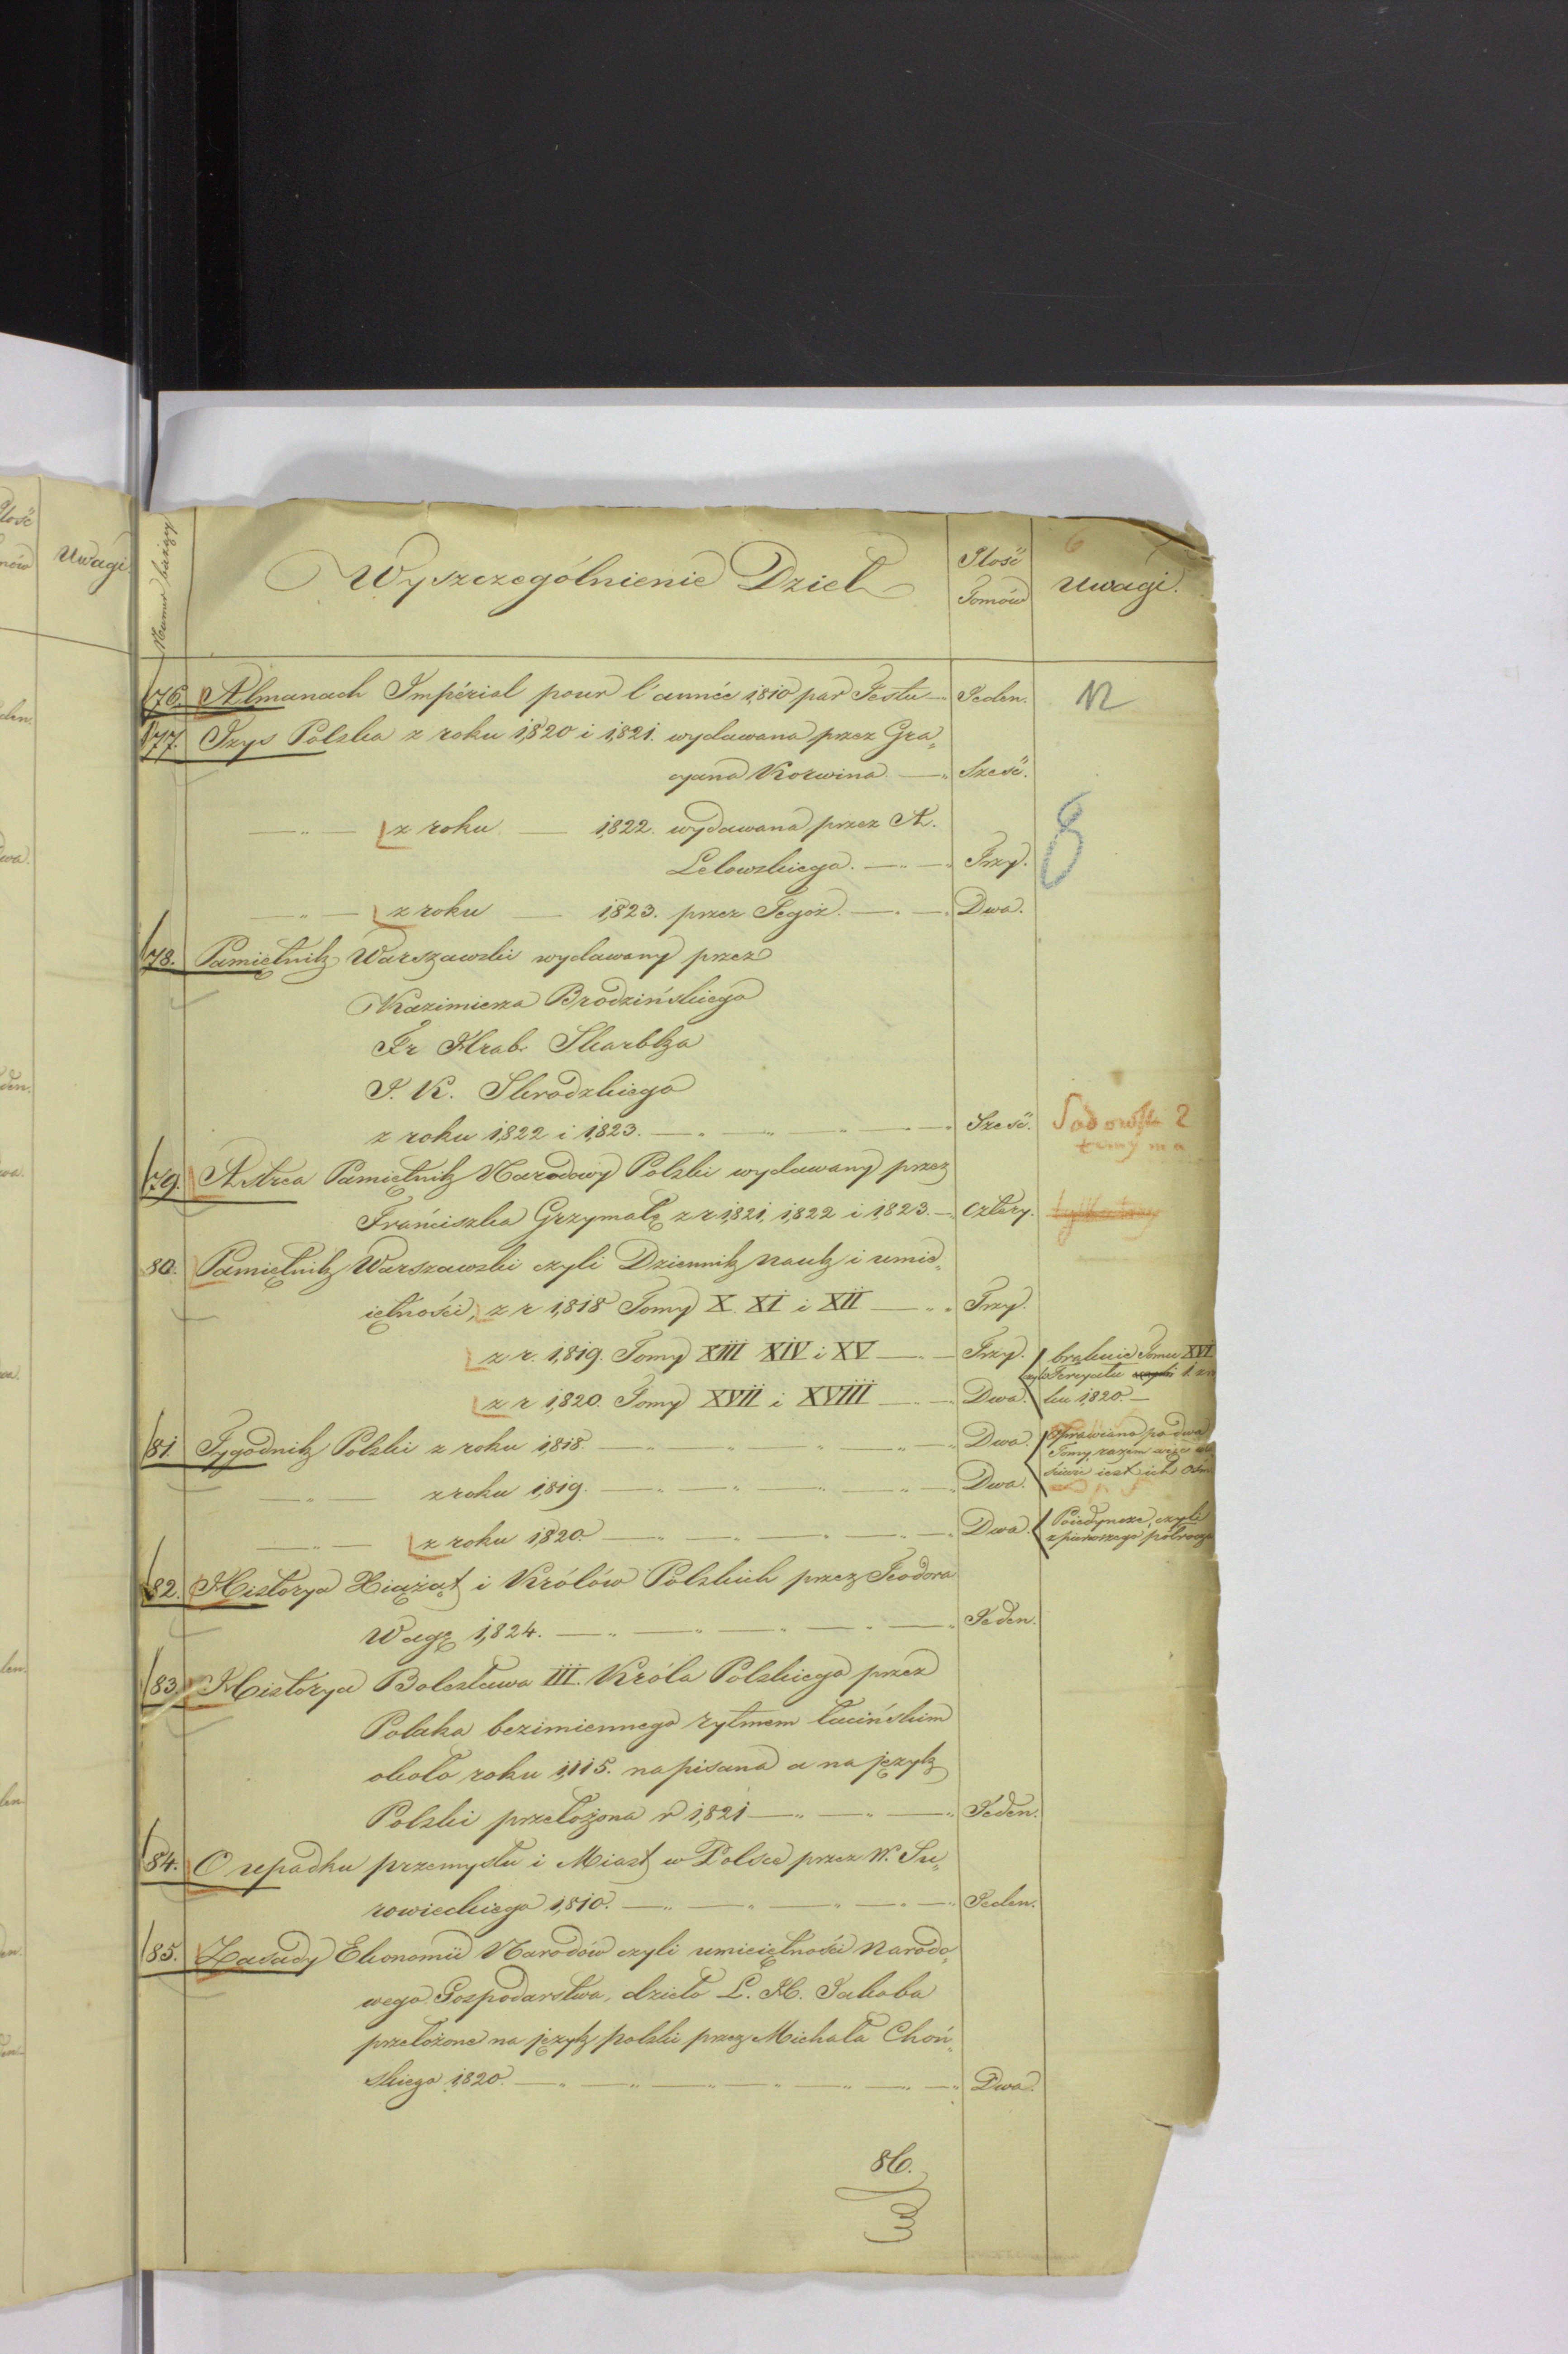 Ilość
Tomów
Uwagi
Numer bieżący
Wyszczególnienie Dzieł
Ilość
Tomów
6
Uwagi.
76. Almanach Impérial pour l'année 1810 par Testu — Jeden. 12
77. Izys Polska z roku 1820 i 1821. wydawana przez Gra„
cyana Korwina. — „ Sześć.
— „ — z roku — 1822. wydawana przez A.
Lelowskiego. — „ — „ Trzy. 8
— „ — z roku — 1823. przez Tegoż. — „ — „ Dwa.
78. Pamiętnik Warszawski wydawany przez
Kazimierza Brodzińskiego
Fr Hrab. Skarbka
J. K. Skrodzkiego
z roku 1822 i 1823. — „ — „ — „ — „ — „ Sześć. Sadowski 2
tomy ma
79. Astrea Pamiętnik Narodowy Polski wydawany przez
Franciszka Grzymałę z r 1821, 1822 i 1823. — „ Cztery.
80. Pamiętnik Warszawski czyli Dziennik nauk i umie„
iętności, z r 1818 Tomy X. XI i XII — „ „ Trzy.
z r. 1819. Tomy XIII XIV i XV — „ — Trzy. brakuie Tomu XVI
z r 1820. Tomy XVII i XVIII — „ — Dwa. ku 1820. —
81. Tygodnik Polski z roku 1818. — „ — „ — „ — „ — „ Dwa. Oprawiano po dwa
Tomy razem więc
iest ich Ośm
— „ — z roku 1819. — „ — „ — „ — „ — „ Dwa.
— „ — z roku 1820. — „ — „ — „ — „ — „ Dwa. Poiedyncze, czyli
z pierwszego półrocza
82. Historya Xiążąt i Królów Polskich przez Teodora
Wagę 1824. — „ — „ — „ — „ — „ Jeden.
83. Historya Bolesława III. Króla Polskiego przez
Polaka bezimiennego rytmem łacińskim
około roku 1115. napisana a na język
Polski przełożona r 1821 — „ — „ — „ Jeden.
84. O upadku przemysłu i Miast w Polsce przez W. Su„
rowieckiego 1810. — „ — „ — „ — „ — „ Jeden.
85. Zasady Ekonomii Narodów czyli umieiętności Narodo„
wego Gospodarstwa, dzieło L. H. Jakoba
przełożone na język polski przez Michała Choń„
skiego 1820. — „ — „ — „ — „ — „ — „ — „ Dwa.
86.